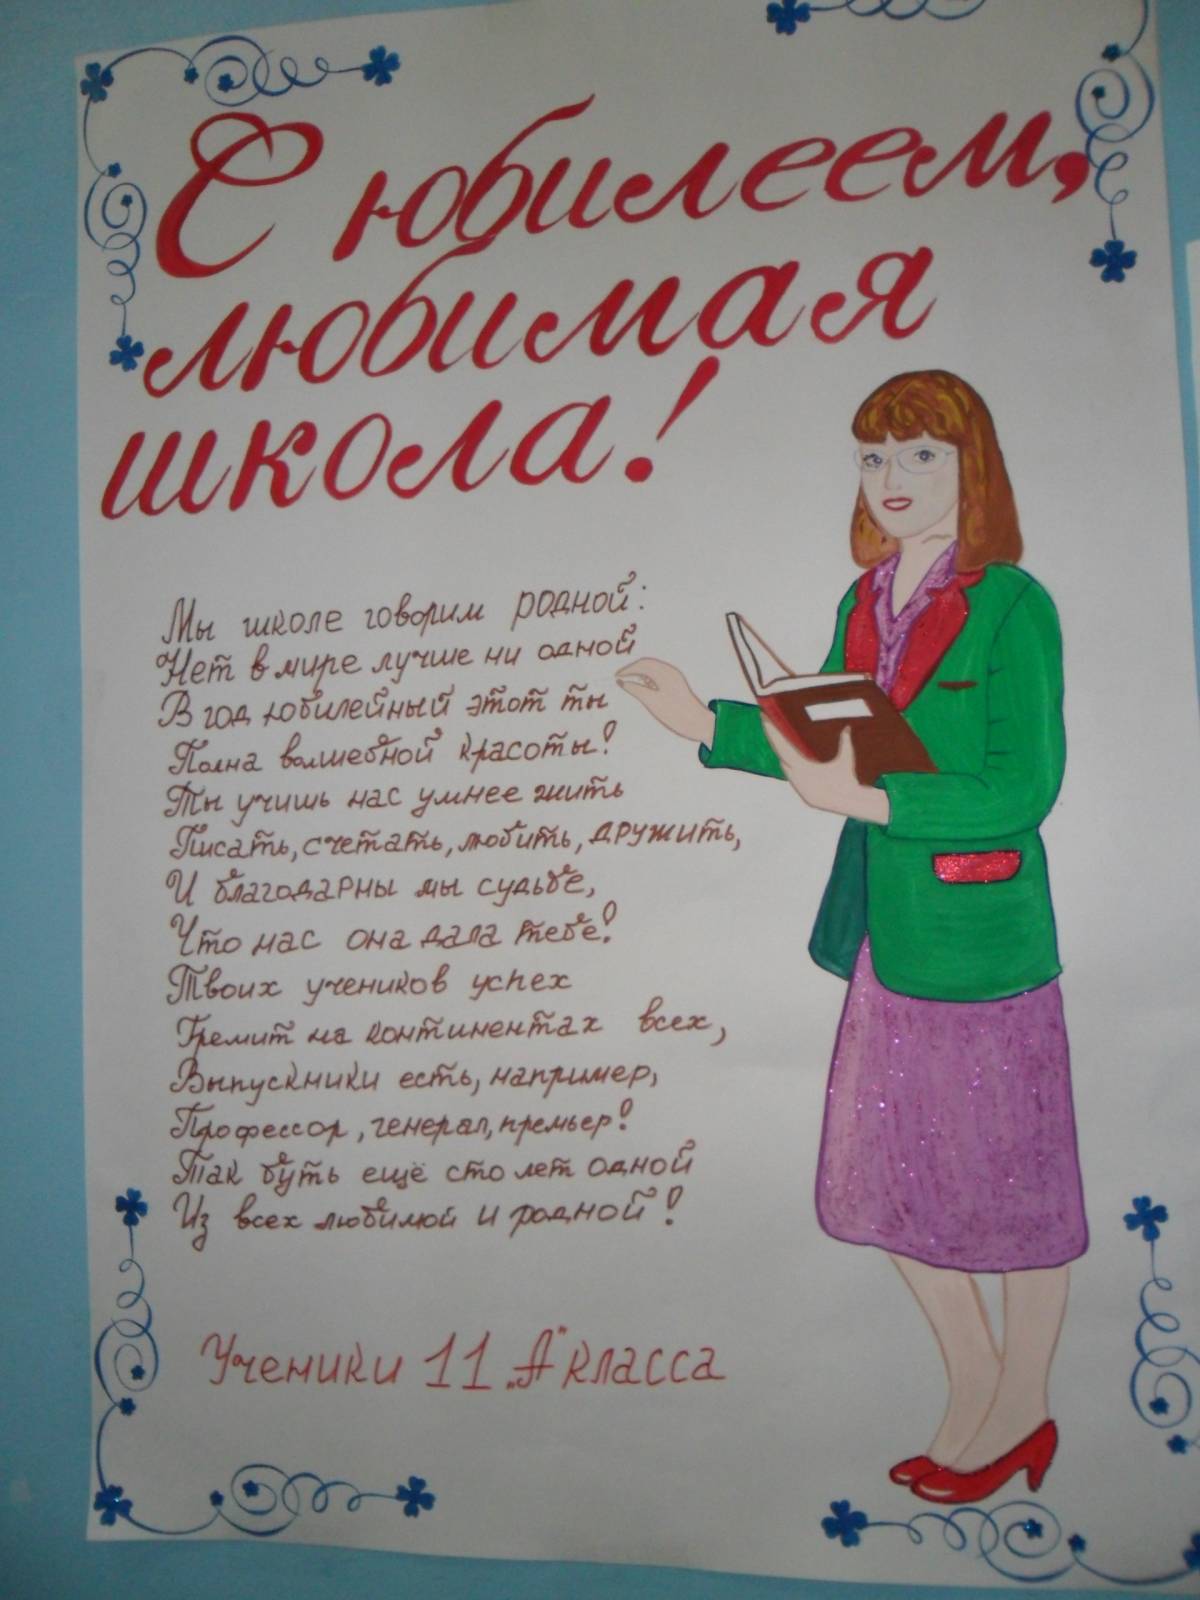 С юбилеем,
любимая
школа!
Мы школе говорим родной:
Нет в мире лучше ни одной
В год юбилейный этот ты
Полна волшебной красоты!
Ты учишь нас умнее жить
Писать, счетать, любить, дружить,
И благодарны мы судьбе,
Что нас она дала тебе!
Твоих учеников успех
Гремит на континентах всех,
Выпускники есть, например,
Профессор, генерал, премьер!
Так будь ещё сто лет одной
Из всех любимой и родной!
Ученики 11 „А" класса